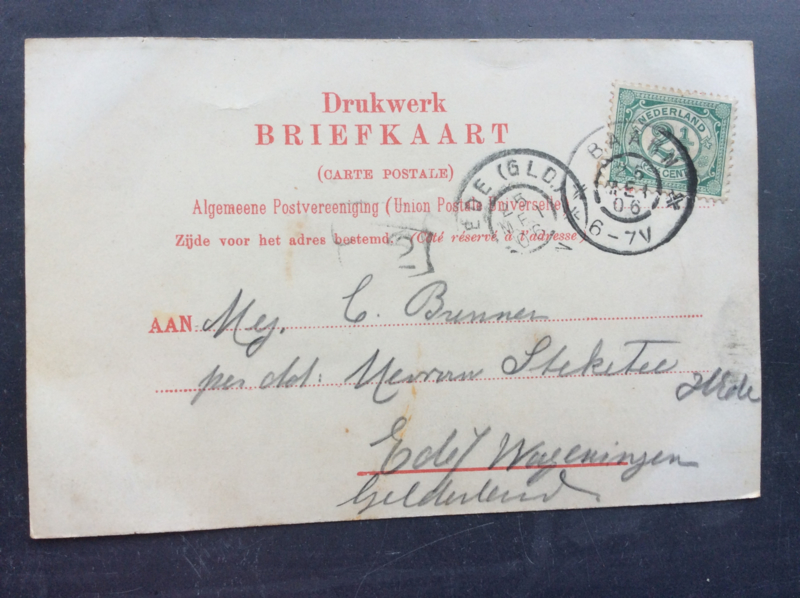 Drukwerk
BRIEFKAART
(CARTE POSTALE)
Algemeene Postvereeniging (Union Postale Universelle)
Zijde voor het adres bestemd. (Côté réservé à l'adresse)
NEDERLAND
2½
CENT
BAARN
SEP
06
6-7V
EDE (GLD.)
SEP
AAN Mej. C. Brenner
per adr: Mevrouw Steketee
Ede / Wageningen
Gelderland